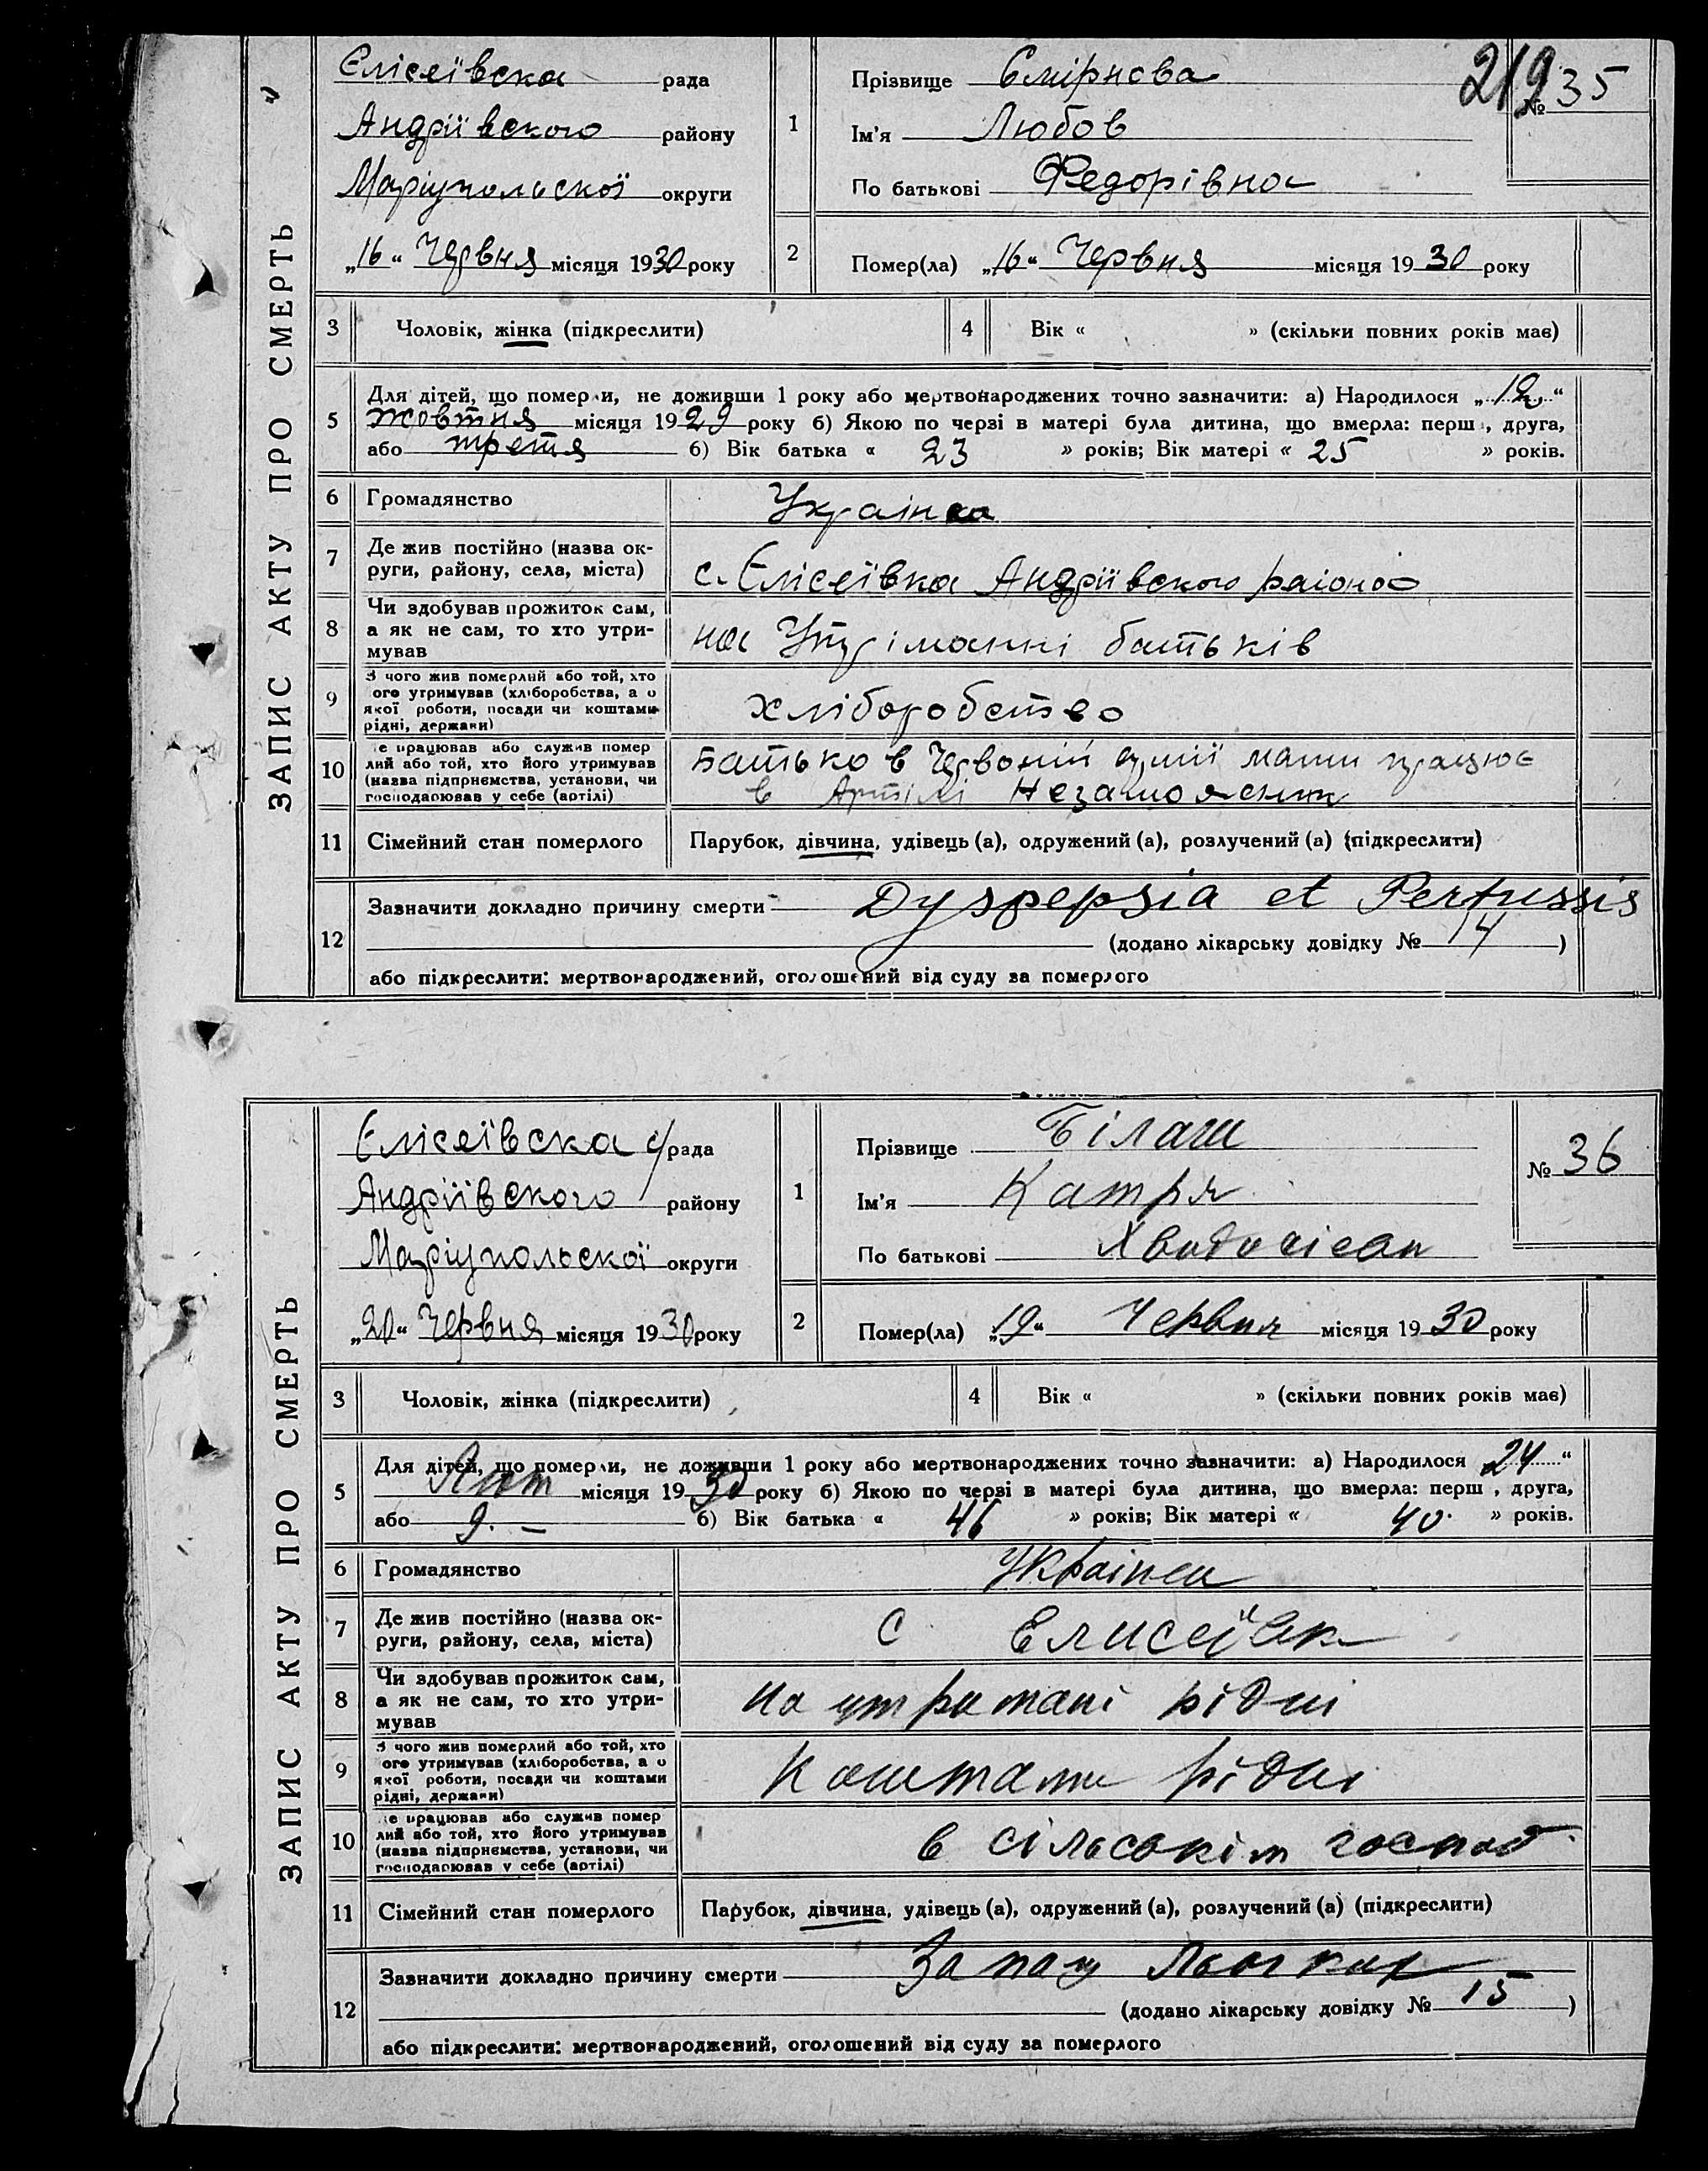 ЗАПИС АКТУ ПРО СМЕРТЬ
Єлісеївска рада
Андріївского району
Маріупольскої округи
„16“ Червня місяця 1930 року
1
Прізвище Смірнова
Ім'я Любов
По батькові Федорівна
219
№ 35
2
Помер(ла) „16“ Червня місяця 1930 року
3 Чоловік, жінка (підкреслити)
4 Вік « » (скільки повних років має)
5 Для дітей, що померли, не доживши 1 року або мертвонароджених точно зазначити: а) Народилося „12“
жовтня місяця 1929 року б) Якою по черзі в матері була дитина, що вмерла: перш, друга,
або третя б) Вік батька « 23 » років; Вік матері « 25 » років.
6 Громадянство Украінка
7 Де жив постійно (назва ок-
руги, району, села, міста)
с. Єлісеївка Андріївского району
8 Чи здобував прожиток сам,
а як не сам, то хто утри-
мував
на Утріманні батьків
9 З чого жив померлий або той, хто
ого утримував (хліборобства, а о
якої роботи, посади чи коштами
рідні, держави)
хліборобство
10 е працював або служив помер
лий або той, хто його утримував
(назва підприємства, установи, чи
господарював у себе (артілі)
Батько в Червоній армії мати працює
в Артілі Незаможник
11 Сімейний стан померлого Парубок, дівчина, удівець (а), одружений (а), розлучений (а) (підкреслити)
12 Зазначити докладно причину смерти Dyspepsia et Pertussis
(додано лікарську довідку № 14 )
або підкреслити: мертвонароджений, оголошений від суду за померлого
ЗАПИС АКТУ ПРО СМЕРТЬ
Єлісеївска с/рада
Андріївского району
Маріупольскої округи
„20“ Червня місяця 1930 року
1
Прізвище Білаш
Ім'я Катря
По батькові
№ 36
2
Помер(ла) „19“ Червня місяця 1930 року
3 Чоловік, жінка (підкреслити)
4 Вік « » (скільки повних років має)
5 Для дітей, що померли, не доживши 1 року або мертвонароджених точно зазначити: а) Народилося „24“
Лют місяця 1930 року б) Якою по черзі в матері була дитина, що вмерла: перш, друга,
або 9. – б) Вік батька « 46 » років; Вік матері « 40. » років.
6 Громадянство Украінка
7 Де жив постійно (назва ок-
руги, району, села, міста)
с Елисеївк
8 Чи здобував прожиток сам,
а як не сам, то хто утри-
мував
на утримані рідні
9 З чого жив померлий або той, хто
ого утримував (хліборобства, а о
якої роботи, посади чи коштами
рідні, держави)
Коштами рідні
10 е працював або служив помер
лий або той, хто його утримував
(назва підприємства, установи, чи
господарював у себе (артілі)
в сільськім господ.
11 Сімейний стан померлого Парубок, дівчина, удівець (а), одружений (а), розлучений (а) (підкреслити)
12 Зазначити докладно причину смерти Запал Льогких
(додано лікарську довідку № 15 )
або підкреслити: мертвонароджений, оголошений від суду за померлого